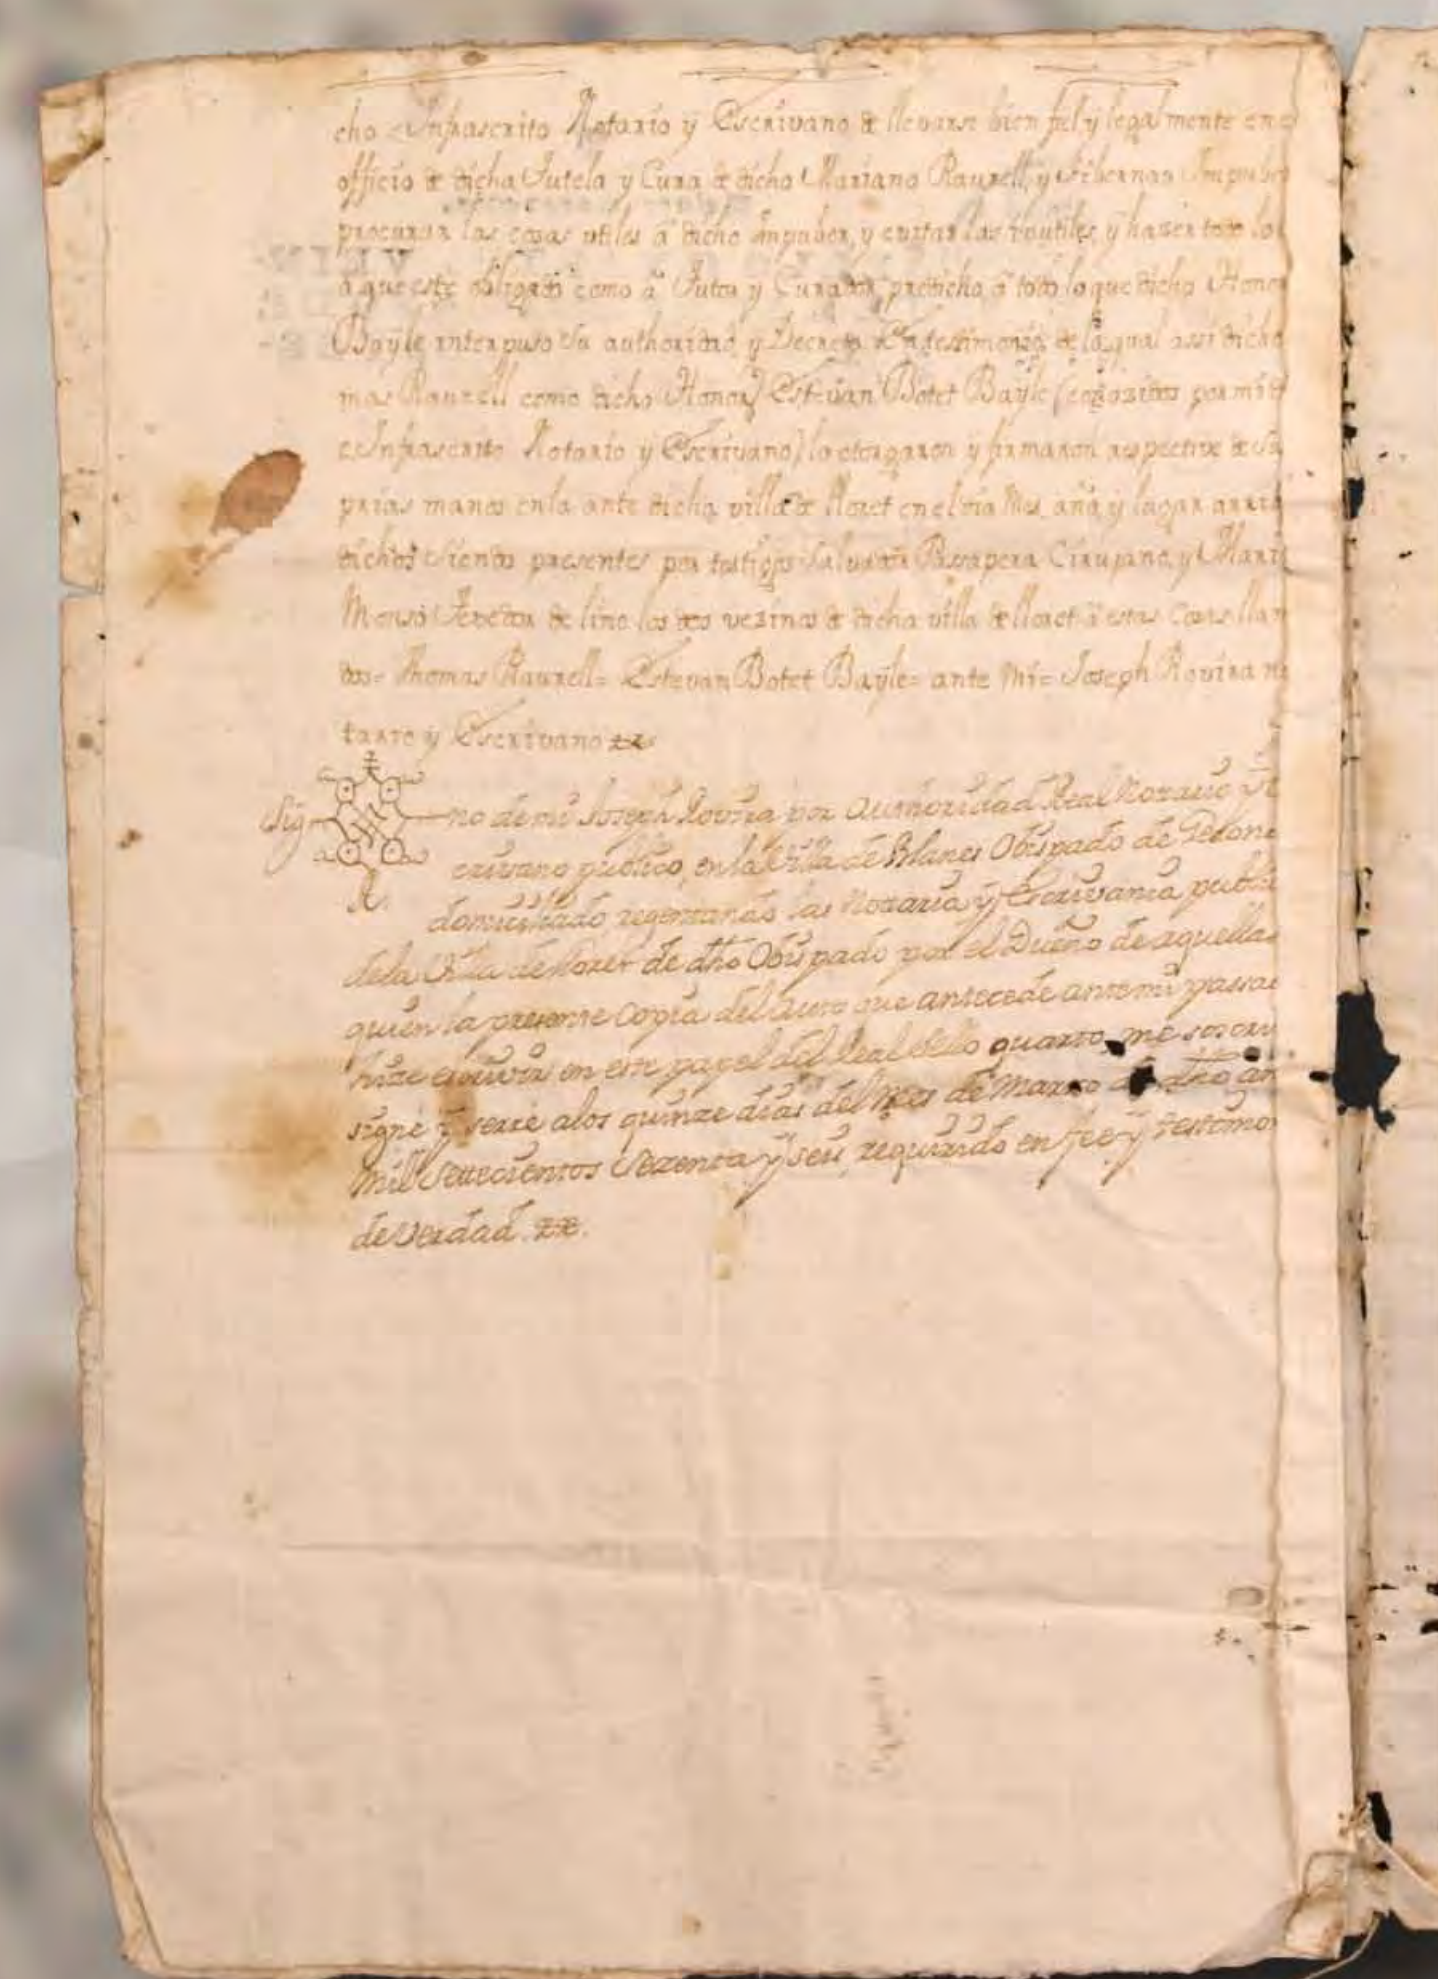 cho Infrascrito Notario y Escrivano de llevarse bien fiel y legalmente en e
officio de dicha Tutela y Cura de dicho Mariano Raurell, y Sibernas Impuber
procurar las cosas utiles â dicho Impuber, y evitar las inutiles, y hazer todo lo
â que este obligado como â Tutor y Curador predicho â todo lo que dicho Honor
Bayle interpuso Su authoridad, y Decreto En testimonio de lo qual assi dicho
mas Raurell como dicho Honor. Estevan Botet Bayle (conozidos por mi
Infrascrito Notario y Escrivano) lo otorgaron y firmaron respective de Su
prias manos en la ante dicha villa de lloret en el dia Mes, año, y lugar arri
dichos Siendo presentes por testigos Salvador Passapera Cirujano, y Mari
Monsó Texedor de lino los dos vezinos de dicha villa de lloret â estas cosas llam
dos= Thomas Raurell= Estevan Botet Bayle= ante Mi= Joseph Rovira no
tario y Escrivano
Sig no de mi Joseph Rovira por Authoridad Real Notario y Es
crivano publico, en la Villa de Blanes Obispado de Gerona
domiciliado, regentando las Notaria y Escrivania publi
de la Villa de lloret de dho Obispado por el Dueño de aquella
quien la presente Copia del Auto que antecede ante mi passa
hize escrivir en este papel del Real Sello quarto, me soscri
signé y serré a los quinze dias del Mes de Marzo de dho añ
mill Settecientos Sezenta y seis, requirido en fee y testimo
de Verdad.